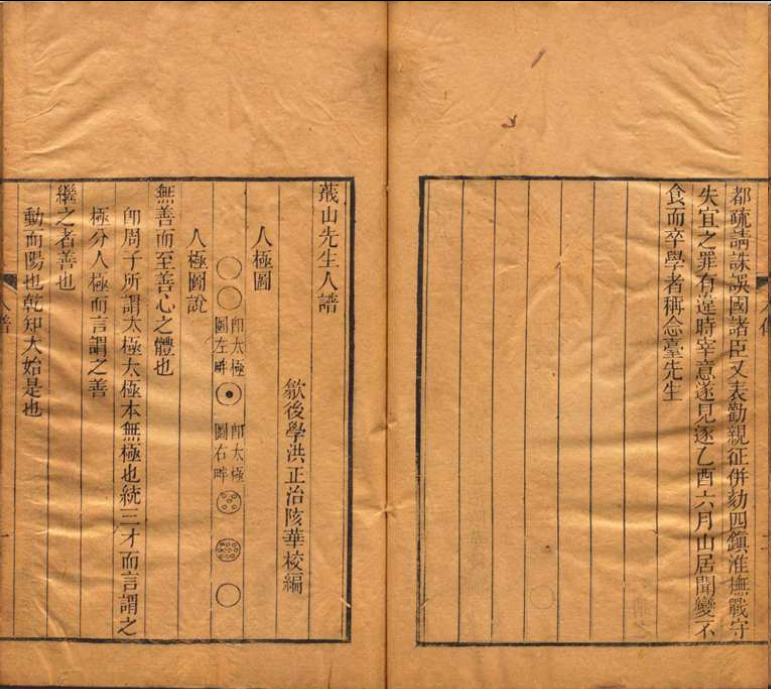 都疏請誅誤國諸臣又表勸親征併劾四鎮淮撫戰守
失宜之罪有違時宰意遂見逐乙酉六月山居聞變不
食而卒學者稱念臺先生
蕺山先生人譜
歙後學洪正治陔華校編
人極圖
即太極
圖左畔
即太極
圖右畔
人極圖說
無善而至善心之體也
即周子所謂太極太極本無極也統三才而言謂之
極分人極而言謂之善
繼之者善也
動而陽也乾知大始是也
人譜